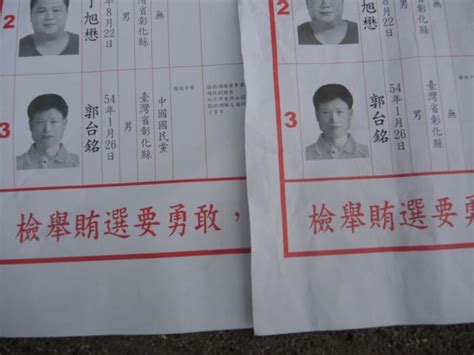 2
丁旭懋
年8月22日
男
臺灣省彰化縣
無
3
郭台銘
54年1月26日
男
臺灣省彰化縣
中國國民黨
檢舉賄選要勇敢，
2
旭懋
年8月22日
男
臺灣省彰化縣
無
3
郭台銘
54年1月26日
男
臺灣省彰化縣
無
檢舉賄選要勇